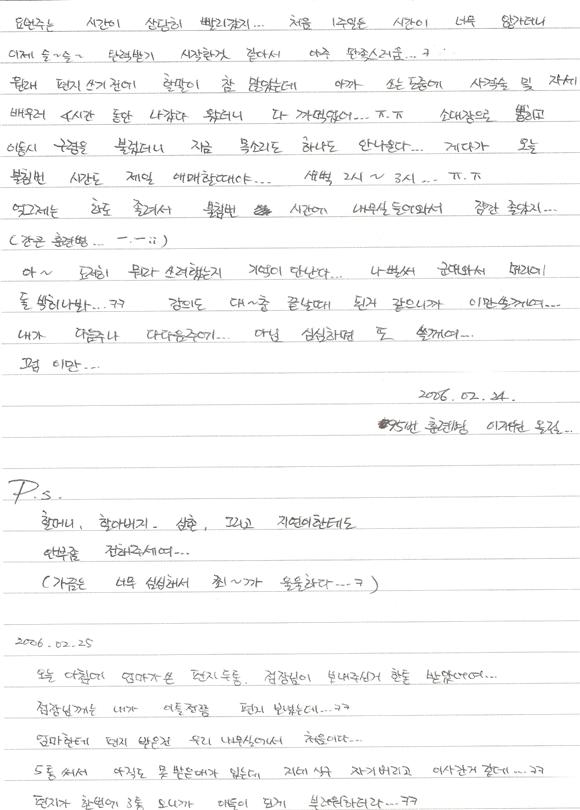 요번주는 시간이 상당히 빨리갔지... 처음 1주일은 시간이 너무 안가더니
이제 슬~슬~ 탄력받기 시작한것 같아서 아주 만족스러움...ㅋ
원래 편지 쓰기 전에 할말이 참 많았는데 아까 쓰는 도중에 사격술 및 자세
배우러 4시간 동안 나갔다 왔더니 다 까먹었어...ㅠ.ㅠ 소대장으로 뽑히고
이동시 구령을 불렀더니 지금 목소리도 하나도 안나온다... 게다가 오늘
불침번 시간도 제일 애매할때야... 새벽 2시~3시...ㅠ.ㅠ
엊그제는 하도 졸려서 불침번 시간에 내무실 들어와서 잠깐 졸았지...
(간큰 훈련병... ㅡ.ㅡ;;)
아~ 도저히 뭐라 쓰려했는지 기억이 안난다... 나 벌써 군대와서 머리에
돌 박히나봐...ㅋㅋ 강의도 대~충 끝날때 된거 같으니까 이만쓸께여...
내가 다음주나 다다음주에... 아님 심심하면 또 쓸께여...
그럼 이만...
2006.02.24.
95번 훈련병 이재원 올림...
P.s.
할머니, 할아버지. 삼촌, 그리고 지연이한테도
안부좀 전해주세여...
(가끔은 너무 심심해서 죄~까 우울하다...ㅋ)
2006.02.25
오늘 아침에 엄마가쓴 편지두통, 점장님이 보내주신거 한통 받았어여...
점장님께는 내가 이틀전쯤 편지 보냈는데...ㅋㅋ
엄마한테 편지 받은건 우리 내무실에서 처음이다...
5통 써서 아직도 못 받은애가 있는데 지네 식구 자기버리고 이사간거 같데...ㅋㅋ
편지가 한번에 3통 오니까 애들이 되게 부러워하더라...ㅋㅋ